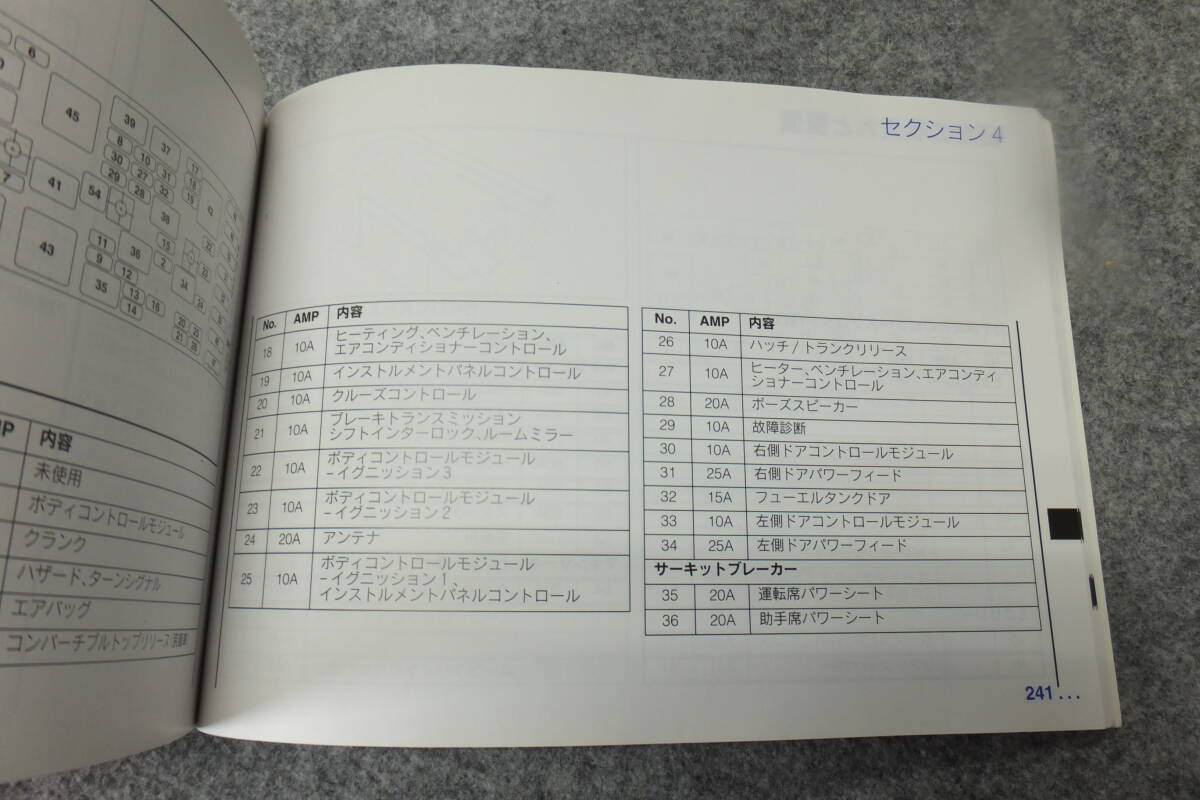 6
45
39
37
8
10
17
30
27
31
18
29
28
32
19
41
54
38
42
7
15
22
43
11
36
2
23
9
12
34
24
35
13
16
14
20
25
21
26
内容
未使用
ボディコントロールモジュール
クランク
ハザード、ターンシグナル
エアバッグ
コンバーチブルトップリリース(装備車
セクション 4
No. AMP 内容
18 10A ヒーティング、ベンチレーション、
エアコンディショナーコントロール
19 10A インストルメントパネルコントロール
20 10A クルーズコントロール
21 10A ブレーキトランスミッション
シフトインターロック、ルームミラー
22 10A ボディコントロールモジュール
–イグニッション3
23 10A ボディコントロールモジュール
–イグニッション2
24 20A アンテナ
25 10A ボディコントロールモジュール
–イグニッション1、
インストルメントパネルコントロール
No. AMP 内容
26 10A ハッチ/トランクリリース
27 10A ヒーター、ベンチレーション、エアコンディ
ショナーコントロール
28 20A ボーズスピーカー
29 10A 故障診断
30 10A 右側ドアコントロールモジュール
31 25A 右側ドアパワーフィード
32 15A フューエルタンクドア
33 10A 左側ドアコントロールモジュール
34 25A 左側ドアパワーフィード
サーキットブレーカー
35 20A 運転席パワーシート
36 20A 助手席パワーシート
241 ...